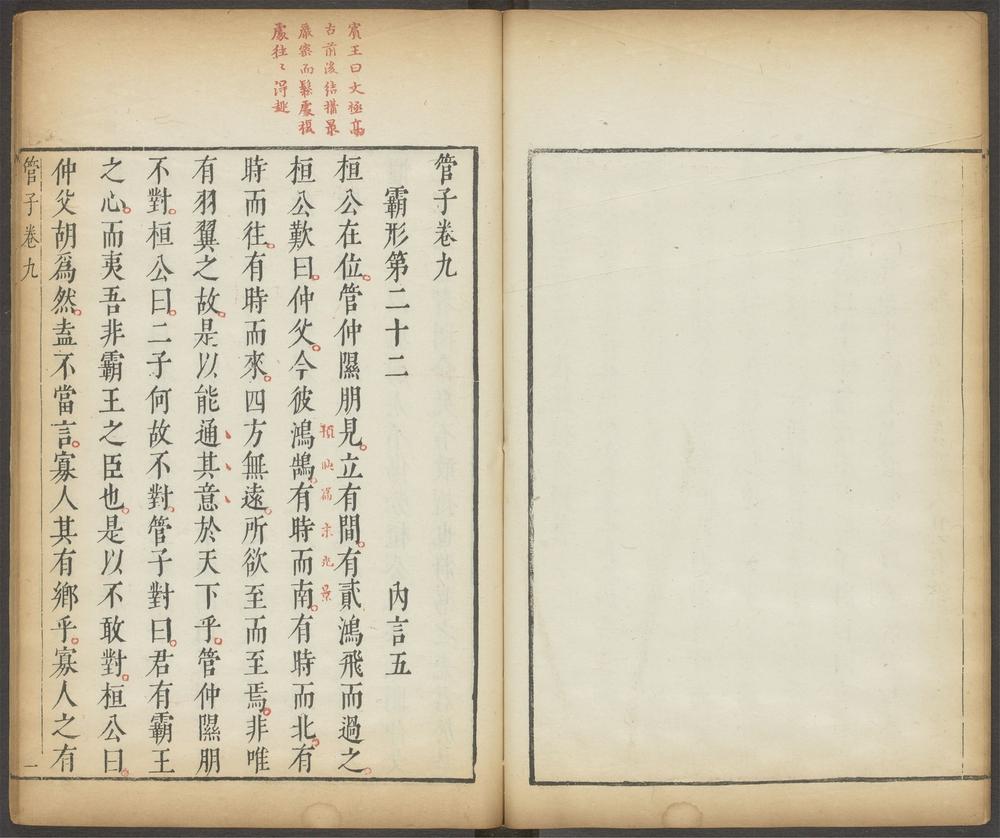 賓王曰文極高
古前後結搆最
嚴密而鬆處複
處往々得趣
管子卷九
霸形第二十二 內言五
桓公在位。管仲隰朋見。立有間。有貳鴻飛而過之。
桓公歎曰。仲父。今彼鴻鵠。有時而南。有時而北。有
時而往。有時而來。四方無遠。所欲至而至焉。非唯
有羽翼之故。是以能通其意於天下乎。管仲隰朋
不對。桓公曰。二子何故不對。管子對曰。君有霸王
之心。而夷吾非霸王之臣也。是以不敢對。桓公曰。
仲父胡爲然。盍不當言。寡人其有鄉乎。寡人之有
管子卷九 一